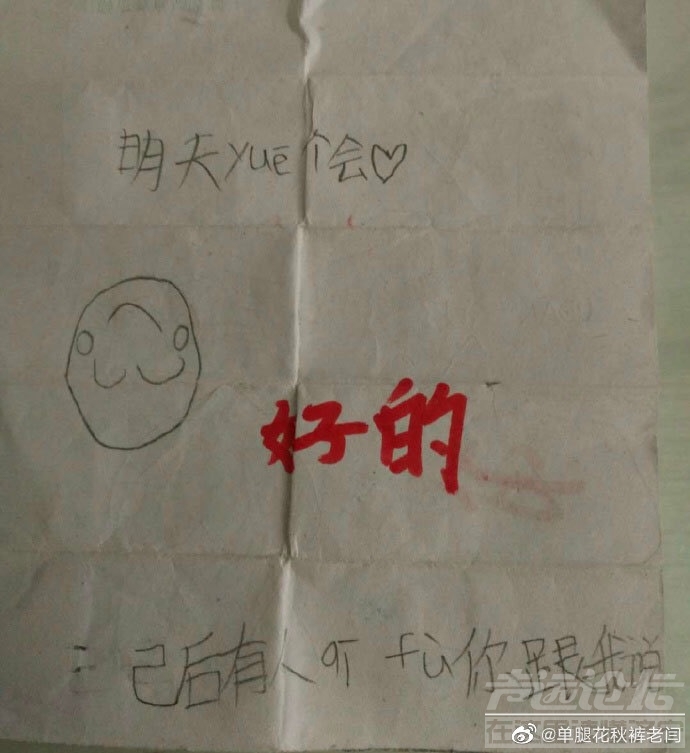 明天yuē个会♡
好的
己后有人qī fù你跟我说
@单腿花秋裤老闫